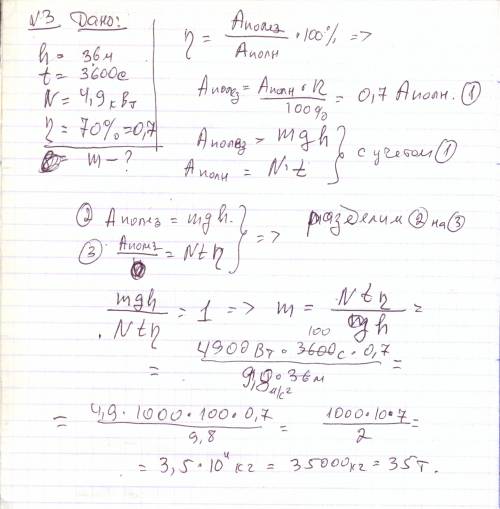 №3 Дано:
h = 36м
t = 3600с
N = 4,9кВт
η = 70% = 0,7
m - ?
η = Aполез / Aполн · 100% =>
Aполез = Aполн · η / 100% = 0,7 Aполн. ①
Aполез = mgh
Aполн = N·t } с учетом ①
② Aполез = mgh.
③ Aполез = Ntη } => разделим ② на ③
mgh / Ntη = 1 => m = Ntη / gh =
= 4900Вт · 3600с · 0,7 / 9,8 м/с² · 36м =
100
= 4,9 · 1000 · 100 · 0,7 / 9,8 = 1000 · 10 · 7 / 2 =
= 3,5 · 10⁴ кг = 35000кг = 35т.